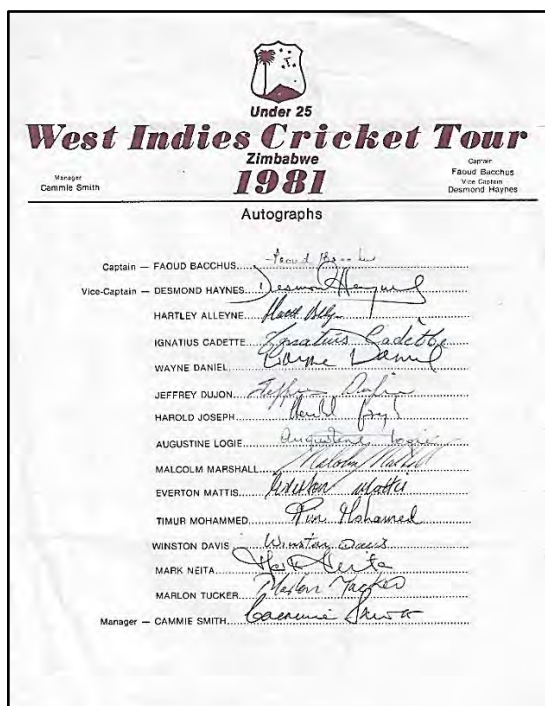 Under 25
West Indies Cricket Tour
Zimbabwe
1981
Manager
Cammie Smith
Captain
Faoud Bacchus
Vice Captain
Desmond Haynes
Autographs
Captain — FAOUD BACCHUS Faoud Bacchus
Vice-Captain — DESMOND HAYNES Desmond Haynes
HARTLEY ALLEYNE
IGNATIUS CADETTE Ignatius Cadette
WAYNE DANIEL Wayne Daniel
JEFFREY DUJON Jeffrey Dujon
HAROLD JOSEPH Harold Joseph
AUGUSTINE LOGIE Augustine Logie
MALCOLM MARSHALL Malcolm Marshall
EVERTON MATTIS Everton Mattis
TIMUR MOHAMMED Tim Mohamed
WINSTON DAVIS Winston Davis
MARK NEITA Mark Neita
MARLON TUCKER Marlon Tucker
Manager — CAMMIE SMITH Cammie Smith